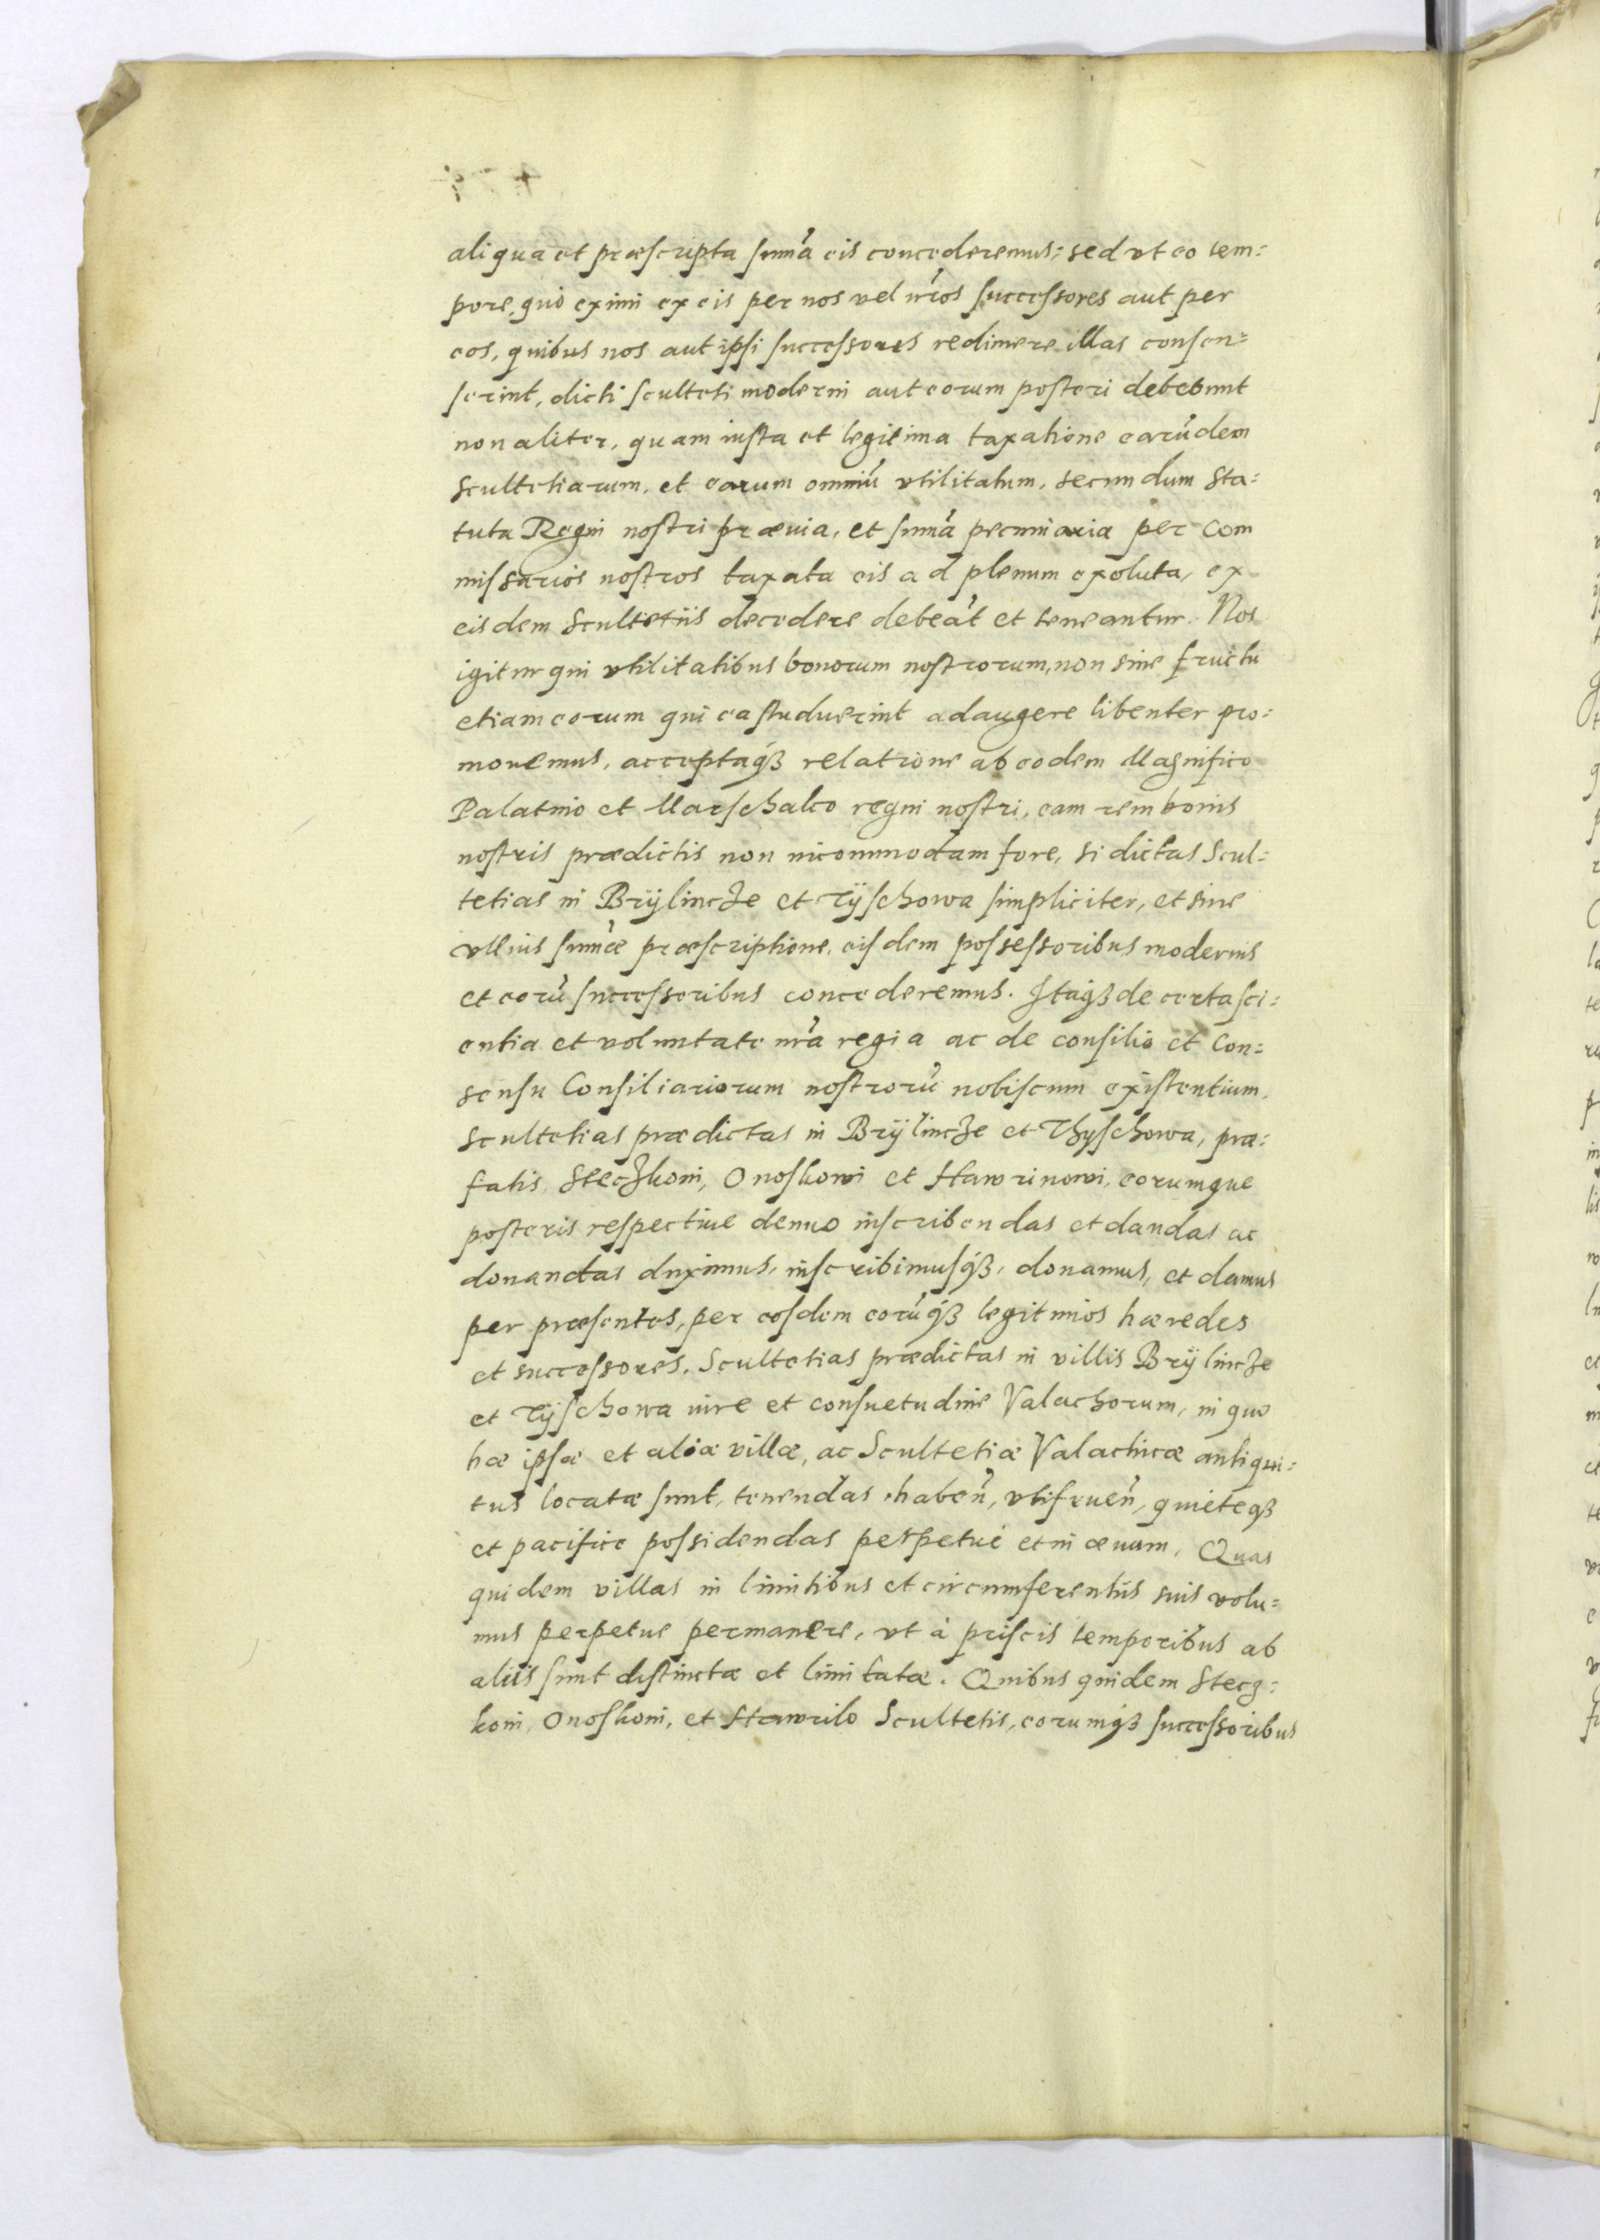 aliqua et præscripta sum̃a eis concederemus: sed vt eo tem=
pore, quo eximi ex eis per nos vel nr̃os successores aut per
eos, quibus nos aut ipsi successores redimere illas consen=
serint, dicti sculteti moderni aut eorum posteri debebunt
non aliter, quam iusta et legitima taxatione earũdem
Scultetiarum, et earum omniũ vtilitatum, secundum sta=
tuta Regni nostri præuia, et sum̃a pecuniaria per Com
missarios nostros taxata eis ad plenum exoluta, ex
eisdem Scultetiis decedere debeãt et teneantur. Nos
igitur qui vtilitatibus bonorum nostrorum, non sine fructu
etiam eorum qui ea studuerint adaugere libenter pro=
mouemus, acceptaq3 relatione ab eodem Magnifico
Palatino et Marschalco regni nostri, eam rem bonis
nostris prædictis non incommodam fore, si dictas Scul=
tetias in Brÿlincze et Tÿschowa simpliciter, et sine
vllius sum̃æ præscriptione, eisdem possessoribus modernis
et eorũ successoribus concederemus. Itaq3 de certa sci=
entia et voluntate nr̃a regia ac de consilio et Con=
sensu Consiliariorum nostrorũ nobiscum existentium,
Scultetias prædictas in Brÿlincze et Thyschowa, præ=
fatis Steczkoni, Onoskowi et Hawrinowi, eorumque
posteris respectiue denuo inscribendas et dandas ac
donandas duximus, inscribimusq3, donamus, et damus
per præsentes, per eosdem eorũq3 legitimos hæredes
et successores. Scultetias prædictas in villis Brÿlincze
et Tÿschowa iure et consuetudine Valachorum, in quo
hæ ipsæ et aliæ villæ, ac Scultetiæ Valachicæ antiqui=
tus locatæ sunt, tenendas, habeñ, vtifrueñ, quieteq3
et pacifice possidendas perpetuè et in æuum. Quas
quidem villas in limitibus et circumferentiis suis volu=
mus perpetue permanere, vt à priscis temporibus ab
aliis sunt distinctæ et limitatæ. Quibus quidem Stecz=
koni, Onoskoni, et Hawrilo Scultetis, eorumq3 successoribus